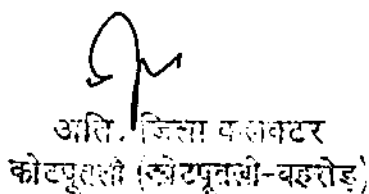 अति. जिला कलक्टर
कोटपूतली (कोटपूतली-बहरोड़)